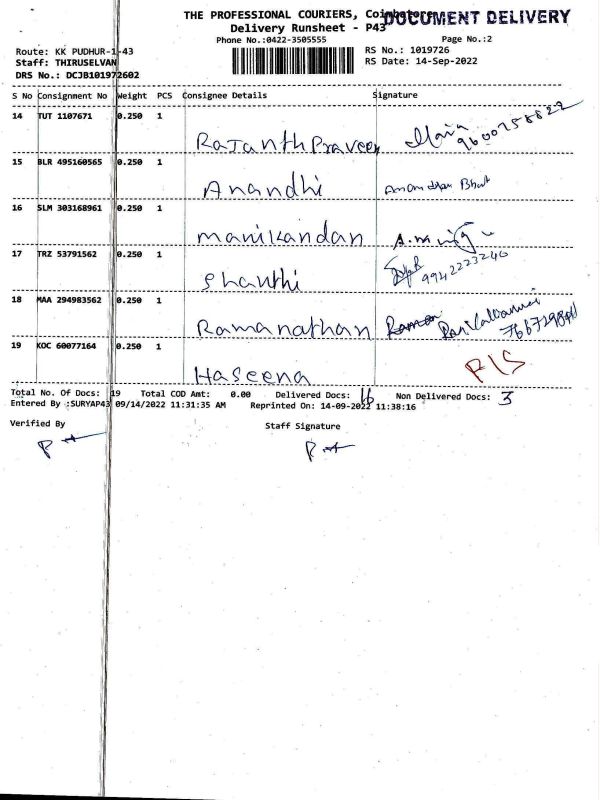 THE PROFESSIONAL COURIERS, Coimbatore
DOCUMENT DELIVERY
Delivery Runsheet - P43
Phone No.:0422-3505555
Page No.:2
Route: KK PUDHUR-1-43
RS No.: 1019726
Staff: THIRUSELVAN
RS Date: 14-Sep-2022
DRS No.: DCJB101972602
S No Consignment No Weight PCS Consignee Details Signature
14 TUT 1107671 0.250 1
Rajanth Praveen 9600758822
15 BLR 495160565 0.250 1
Anandhi
16 SLM 303168961 0.250 1
manikandan
17 TRZ 53791562 0.250 1
Shanthi 9942223240
18 MAA 294983562 0.250 1
Ramanathan
19 KOC 60077164 0.250 1
Haseena
Total No. Of Docs: 19 Total COD Amt: 0.00 Delivered Docs: 16 Non Delivered Docs: 3
Entered By :SURYAP43 09/14/2022 11:31:35 AM Reprinted On: 14-09-2022 11:38:16
Verified By Staff Signature